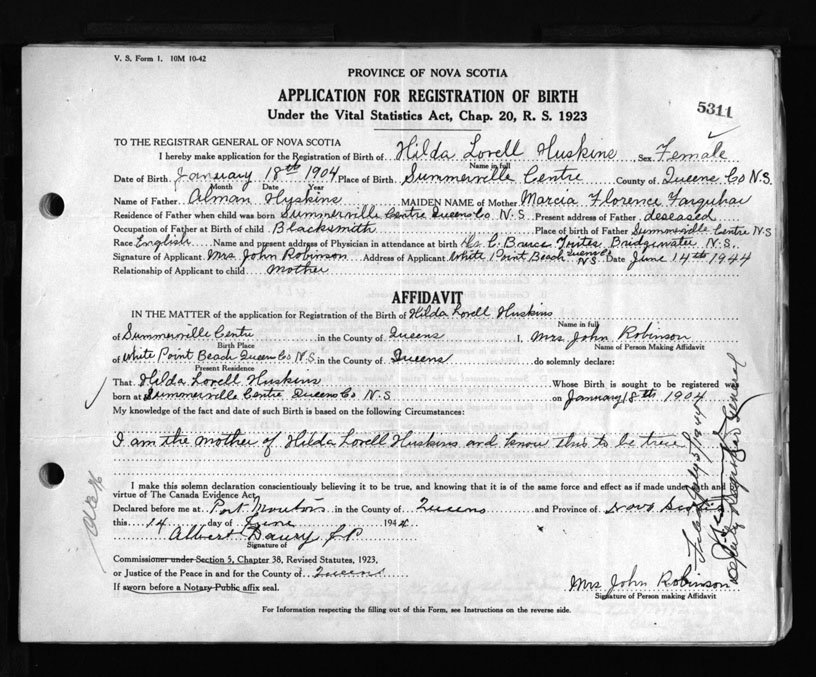 V. S. Form 1. 10M 10-42
PROVINCE OF NOVA SCOTIA
APPLICATION FOR REGISTRATION OF BIRTH
5311
Under the Vital Statistics Act, Chap. 20, R. S. 1923
TO THE REGISTRAR GENERAL OF NOVA SCOTIA
I hereby make application for the Registration of Birth of Hilda Lovell Huskins, Sex Female
Name in full
Date of Birth January 18th 1904 Place of Birth Summerville Centre County of Queens Co N.S.
Month Date Year
Name of Father Alman Huskins MAIDEN NAME of Mother Marcia Florence Farquhar
Residence of Father when child was born Summerville Centre Queens Co N.S Present address of Father deseased
Occupation of Father at Birth of child Blacksmith Place of Birth of Father Summerville Centre N S
Race English Name and present address of Physician in attendance at birth Bridgewater N.S.
Signature of Applicant Mrs John Robinson Address of Applicant White Point Beach Queens NS Date June 14th 1944
Relationship of Applicant to child mother
AFFIDAVIT
IN THE MATTER of the application for Registration of the Birth of Hilda Lovell Huskins
Name in full
of Summerville Centre in the County of Queens I, Mrs John Robinson
Birth Place Name of Person Making Affidavit
of White Point Beach Queens Co N.S. in the County of Queens do solemnly declare:
Present Residence
That Hilda Lovell Huskins Whose Birth is sought to be registered was
born at Summerville Centre Queens Co N.S. on January 18th 1904
My knowledge of the fact and date of such Birth is based on the following Circumstances:
I am the mother of Hilda Lovell Huskins and know this to be true
I make this solemn declaration conscientiously believing it to be true, and knowing that it is of the same force and effect as if made under oath and by
virtue of The Canada Evidence Act.
Declared before me at Port Mouton in the County of Queens and Province of Nova Scotia
this 14 day of June 1944
Albert Daury J P
Signature of
Commissioner under Section 5, Chapter 38, Revised Statutes, 1923,
or Justice of the Peace in and for the County of Queens
If sworn before a Notary Public affix seal.
Mrs John Robinson
Signature of Person making Affidavit
For Information respecting the filling out of this Form, see Instructions on the reverse side.
Deputy Registrar General